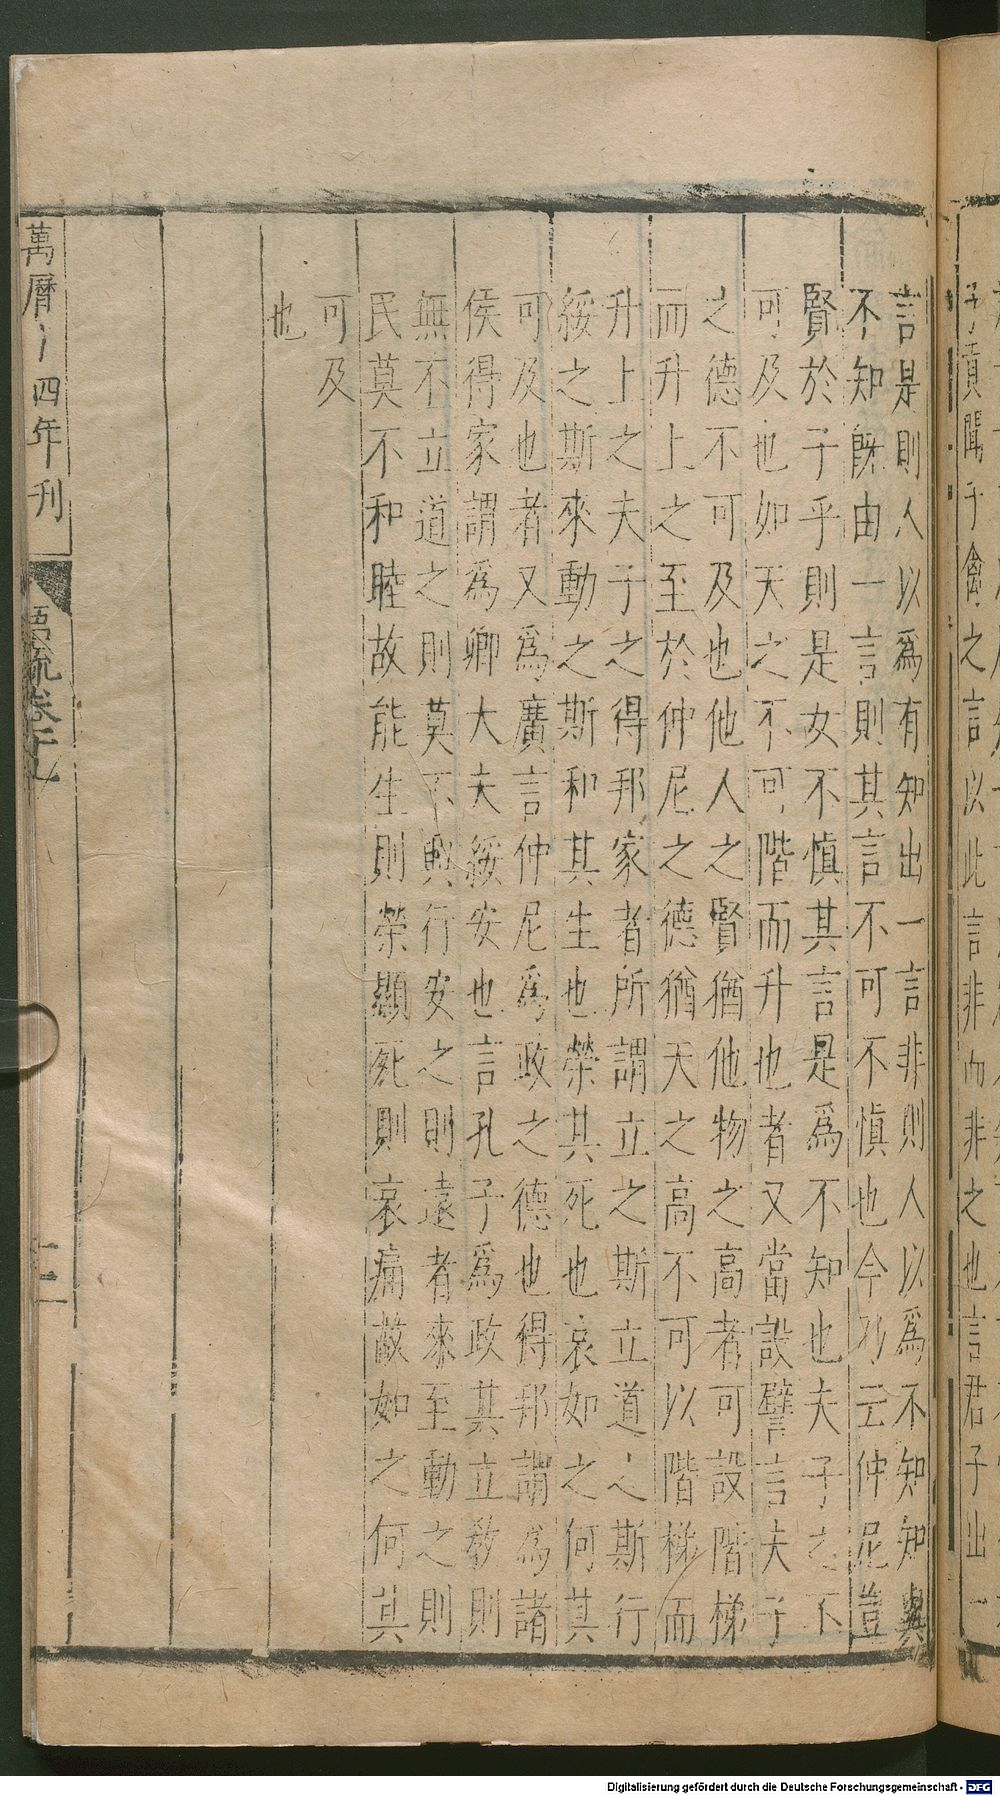 子貢聞子禽之言以此言非而非之也言君子出一
言是則人以爲有知出一言非則人以爲不知知與
不知旣由一言則其言不可不慎也今乃云仲尼豈
賢於子乎則是女不慎其言是爲不知也夫子之不
可及也如天之不可階而升也者又當設譬言夫子
之德不可及也他人之賢猶他物之高者可設階梯
而升上之至於仲尼之德猶天之高不可以階梯而
升上之夫子之得邦家者所謂立之斯立道之斯行
綏之斯來動之斯和其生也榮其死也哀如之何其
可及也者又爲廣言仲尼爲政之德也得邦謂為諸
侯得家謂爲卿大夫綏安也言孔子爲政其立敎則
無不立道之則莫不興行安之則遠者來至動之則
民莫不和睦故能生則榮顯死則哀痛故如之何其
可及
也
萬曆十四年刊
語疏卷十九
十二
Digitalisierung gefördert durch die Deutsche Forschungsgemeinschaft - DFG